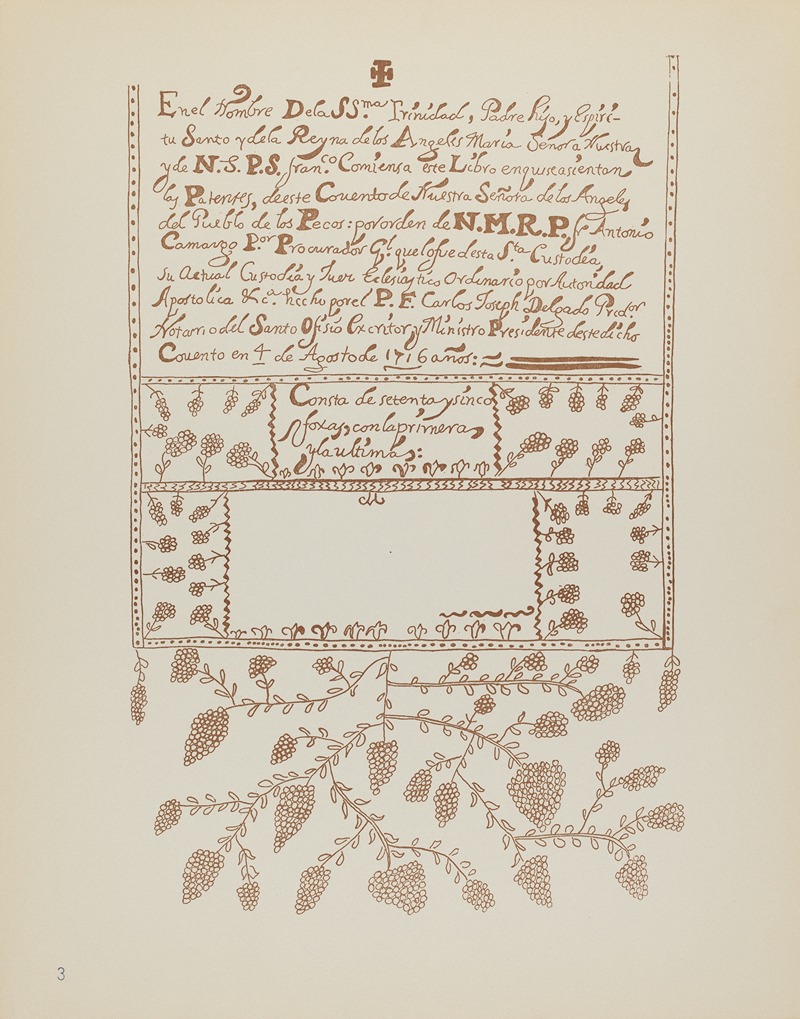 En el Nombre De la SS.ma Trinidad, Padre hijo, y Espiri-
tu Santo y de la Reyna de los Angeles Maria Señora Nuestra
y de N. S. P. S. fran.co Comiensa este Libro en quise asientan
las Patentes, de este Couento de Nuestra Señora de los Angeles
del Pueblo de los Pecos: por orden de N. M. R. P. fr Antonio
Camargo P.or Procurador G.l que lo fue desta S.ta Custodia,
su Actual Custodia y Juez Eclesiastico Ordinario por Autoridad
Apostolica &c.a hecho por el P. F. Carlos Joseph Delgado Pred.or
Notario del Santo Ofisio Escritor y Ministro Presidente deste dicho
Couento en 4 de Agosto de 1716 años:
Consta de setenta y sinco
foxas, con la primera,
y la ultima,:
3